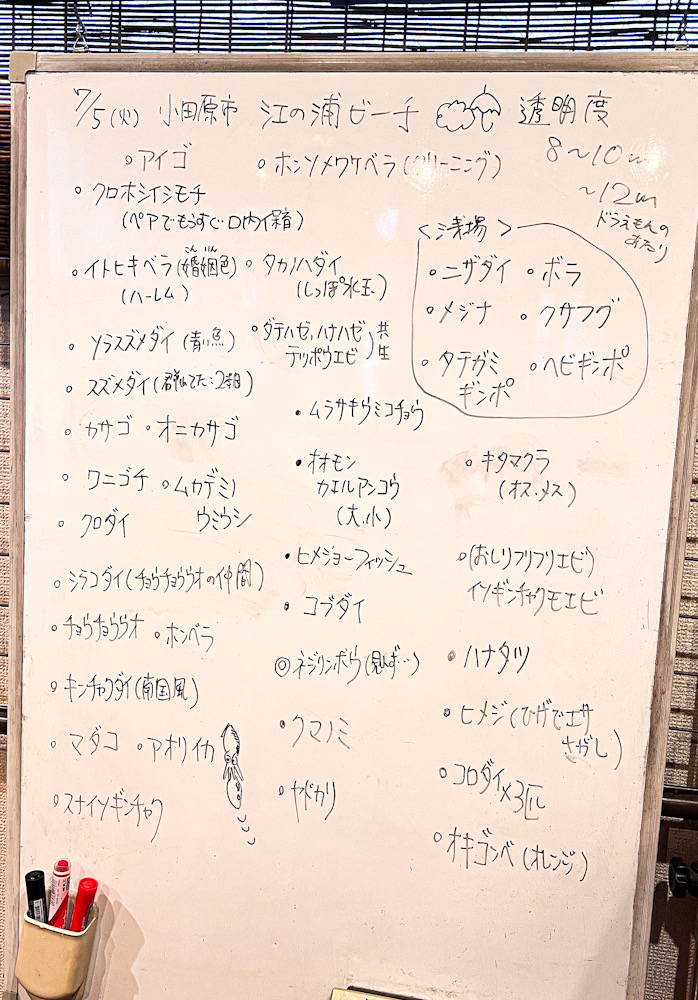 7/5(火) 小田原市 江の浦ビーチ 透明度
8〜10m
〜12m
ドラえもんの
あたり
○アイゴ ○ホンソメワケベラ(クリーニング)
○クロホシイシモチ
(ペアでもうすぐ口内保育)
○イトヒキベラ(婚姻色)
こんいん
(ハーレム)
○タカノハダイ
(しっぽ水玉)
○ソラスズメダイ(青い魚)
○ダテハゼ,ハナハゼ
テッポウエビ)共生
○スズメダイ(群れてた:2本目)
○カサゴ ○オニカサゴ
○ワニゴチ ○ムカデミノ
ウミウシ
○クロダイ
○シラコダイ(チョウチョウウオの仲間)
○チョウチョウウオ ○ホンベラ
○キンチャクダイ(南国風)
○マダコ ○アオリイカ
○スナイソギンチャク
・ムラサキウミコチョウ
・オオモン
カエルアンコウ
(大.小)
・ヒメジョーフィッシュ
○コブダイ
◎ネジリンボウ(見れず…)
・クマノミ
○ヤドカリ
<浅場>
○ニザダイ ○ボラ
○メジナ ○クサフグ
○タテガミ
ギンポ
○ヘビギンポ
○キタマクラ
(オス.メス)
○(おしりフリフリエビ)
イソギンチャクモエビ
・ハナタツ
○ヒメジ(ひげでエサ
さがし)
○コロダイ×3匹
○オキゴンベ(オレンジ)